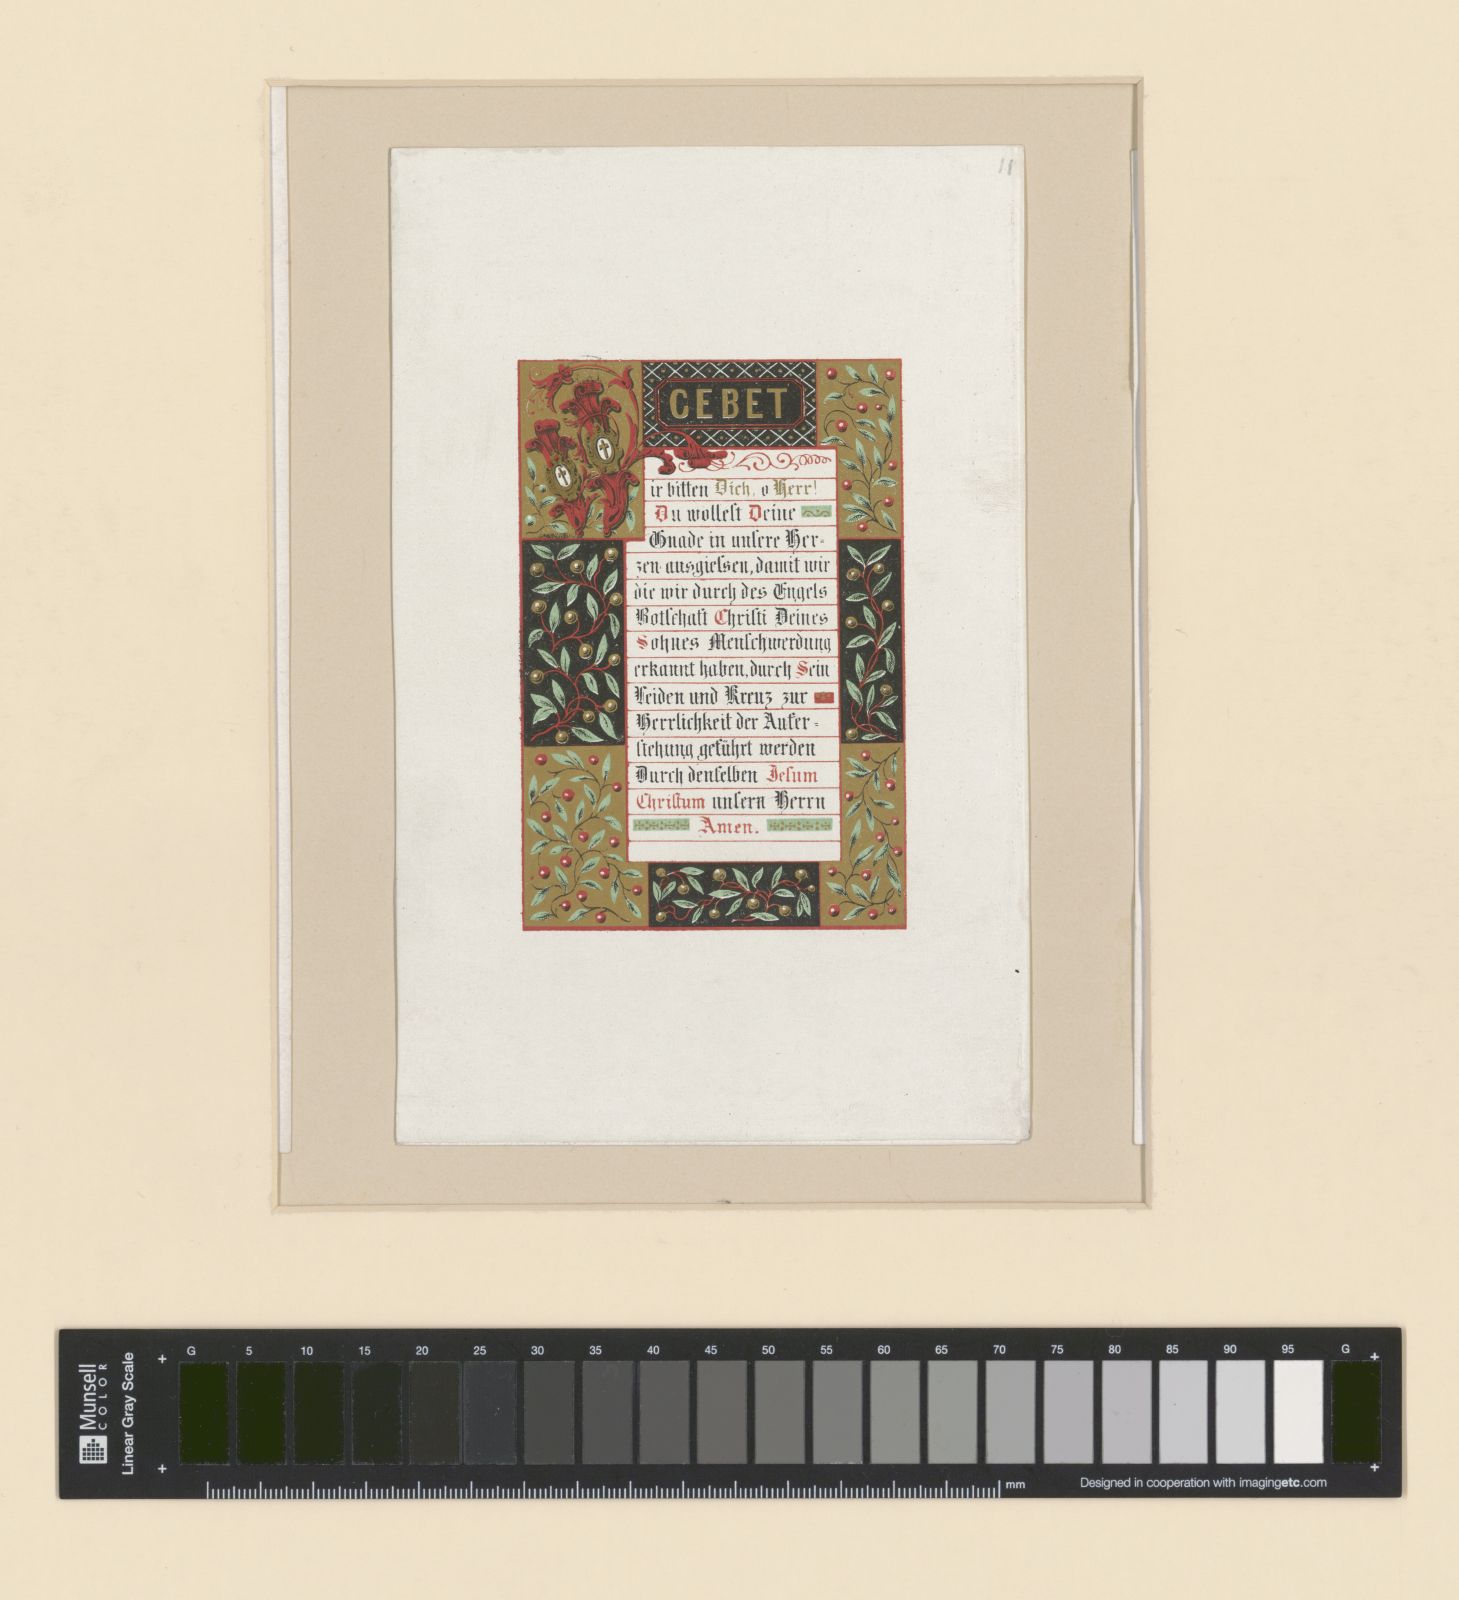 11
GEBET
Wir bitten Dich, o Herr!
Du wollest Deine
Gnade in unsere Her-
zen ausgiessen, damit wir
die wir durch des Engels
Botschaft Christi Deines
Sohnes Menschwerdung
erkannt haben, durch Sein
Leiden und Kreuz zur
Herrlichkeit der Aufer-
stehung geführt werden
Durch denselben Jesum
Christum unsern Herrn
Amen.
Munsell
COLOR
Linear Gray Scale
G 5 10 15 20 25 30 35 40 45 50 55 60 65 70 75 80 85 90 95 G
mm
Designed in cooperation with imagingetc.com